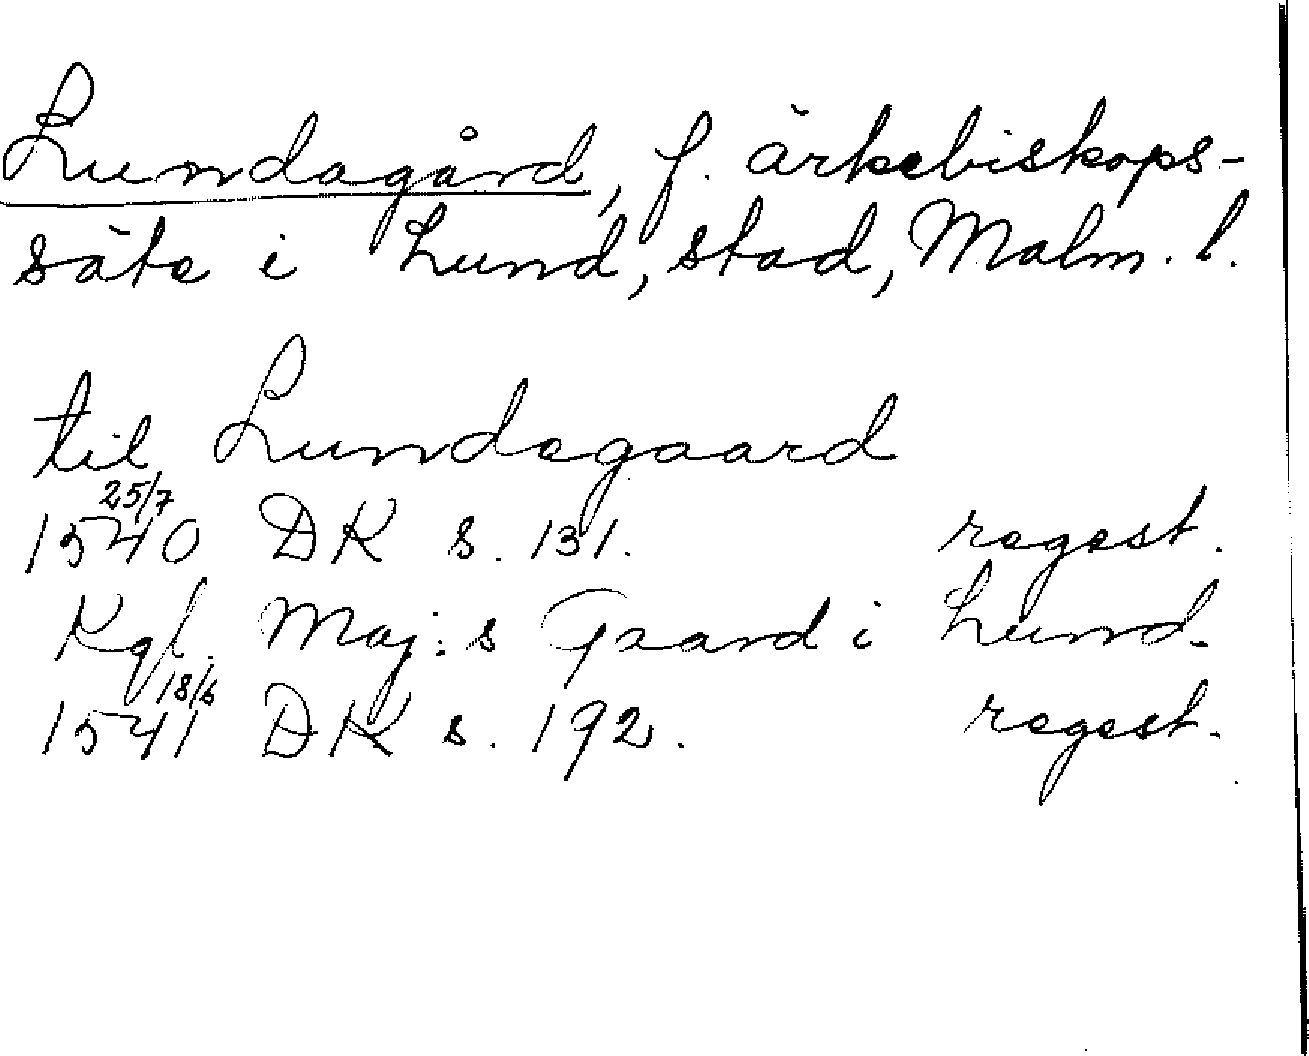 Lundagård, f. ärkebiskops-
säte i Lund, stad, Malm. l.
til Lundegaard
25/7
1540 DK s. 131. regest.
Kgl. Maj:s Gaard i Lund.
18/6
1541 DK s. 192. regest.